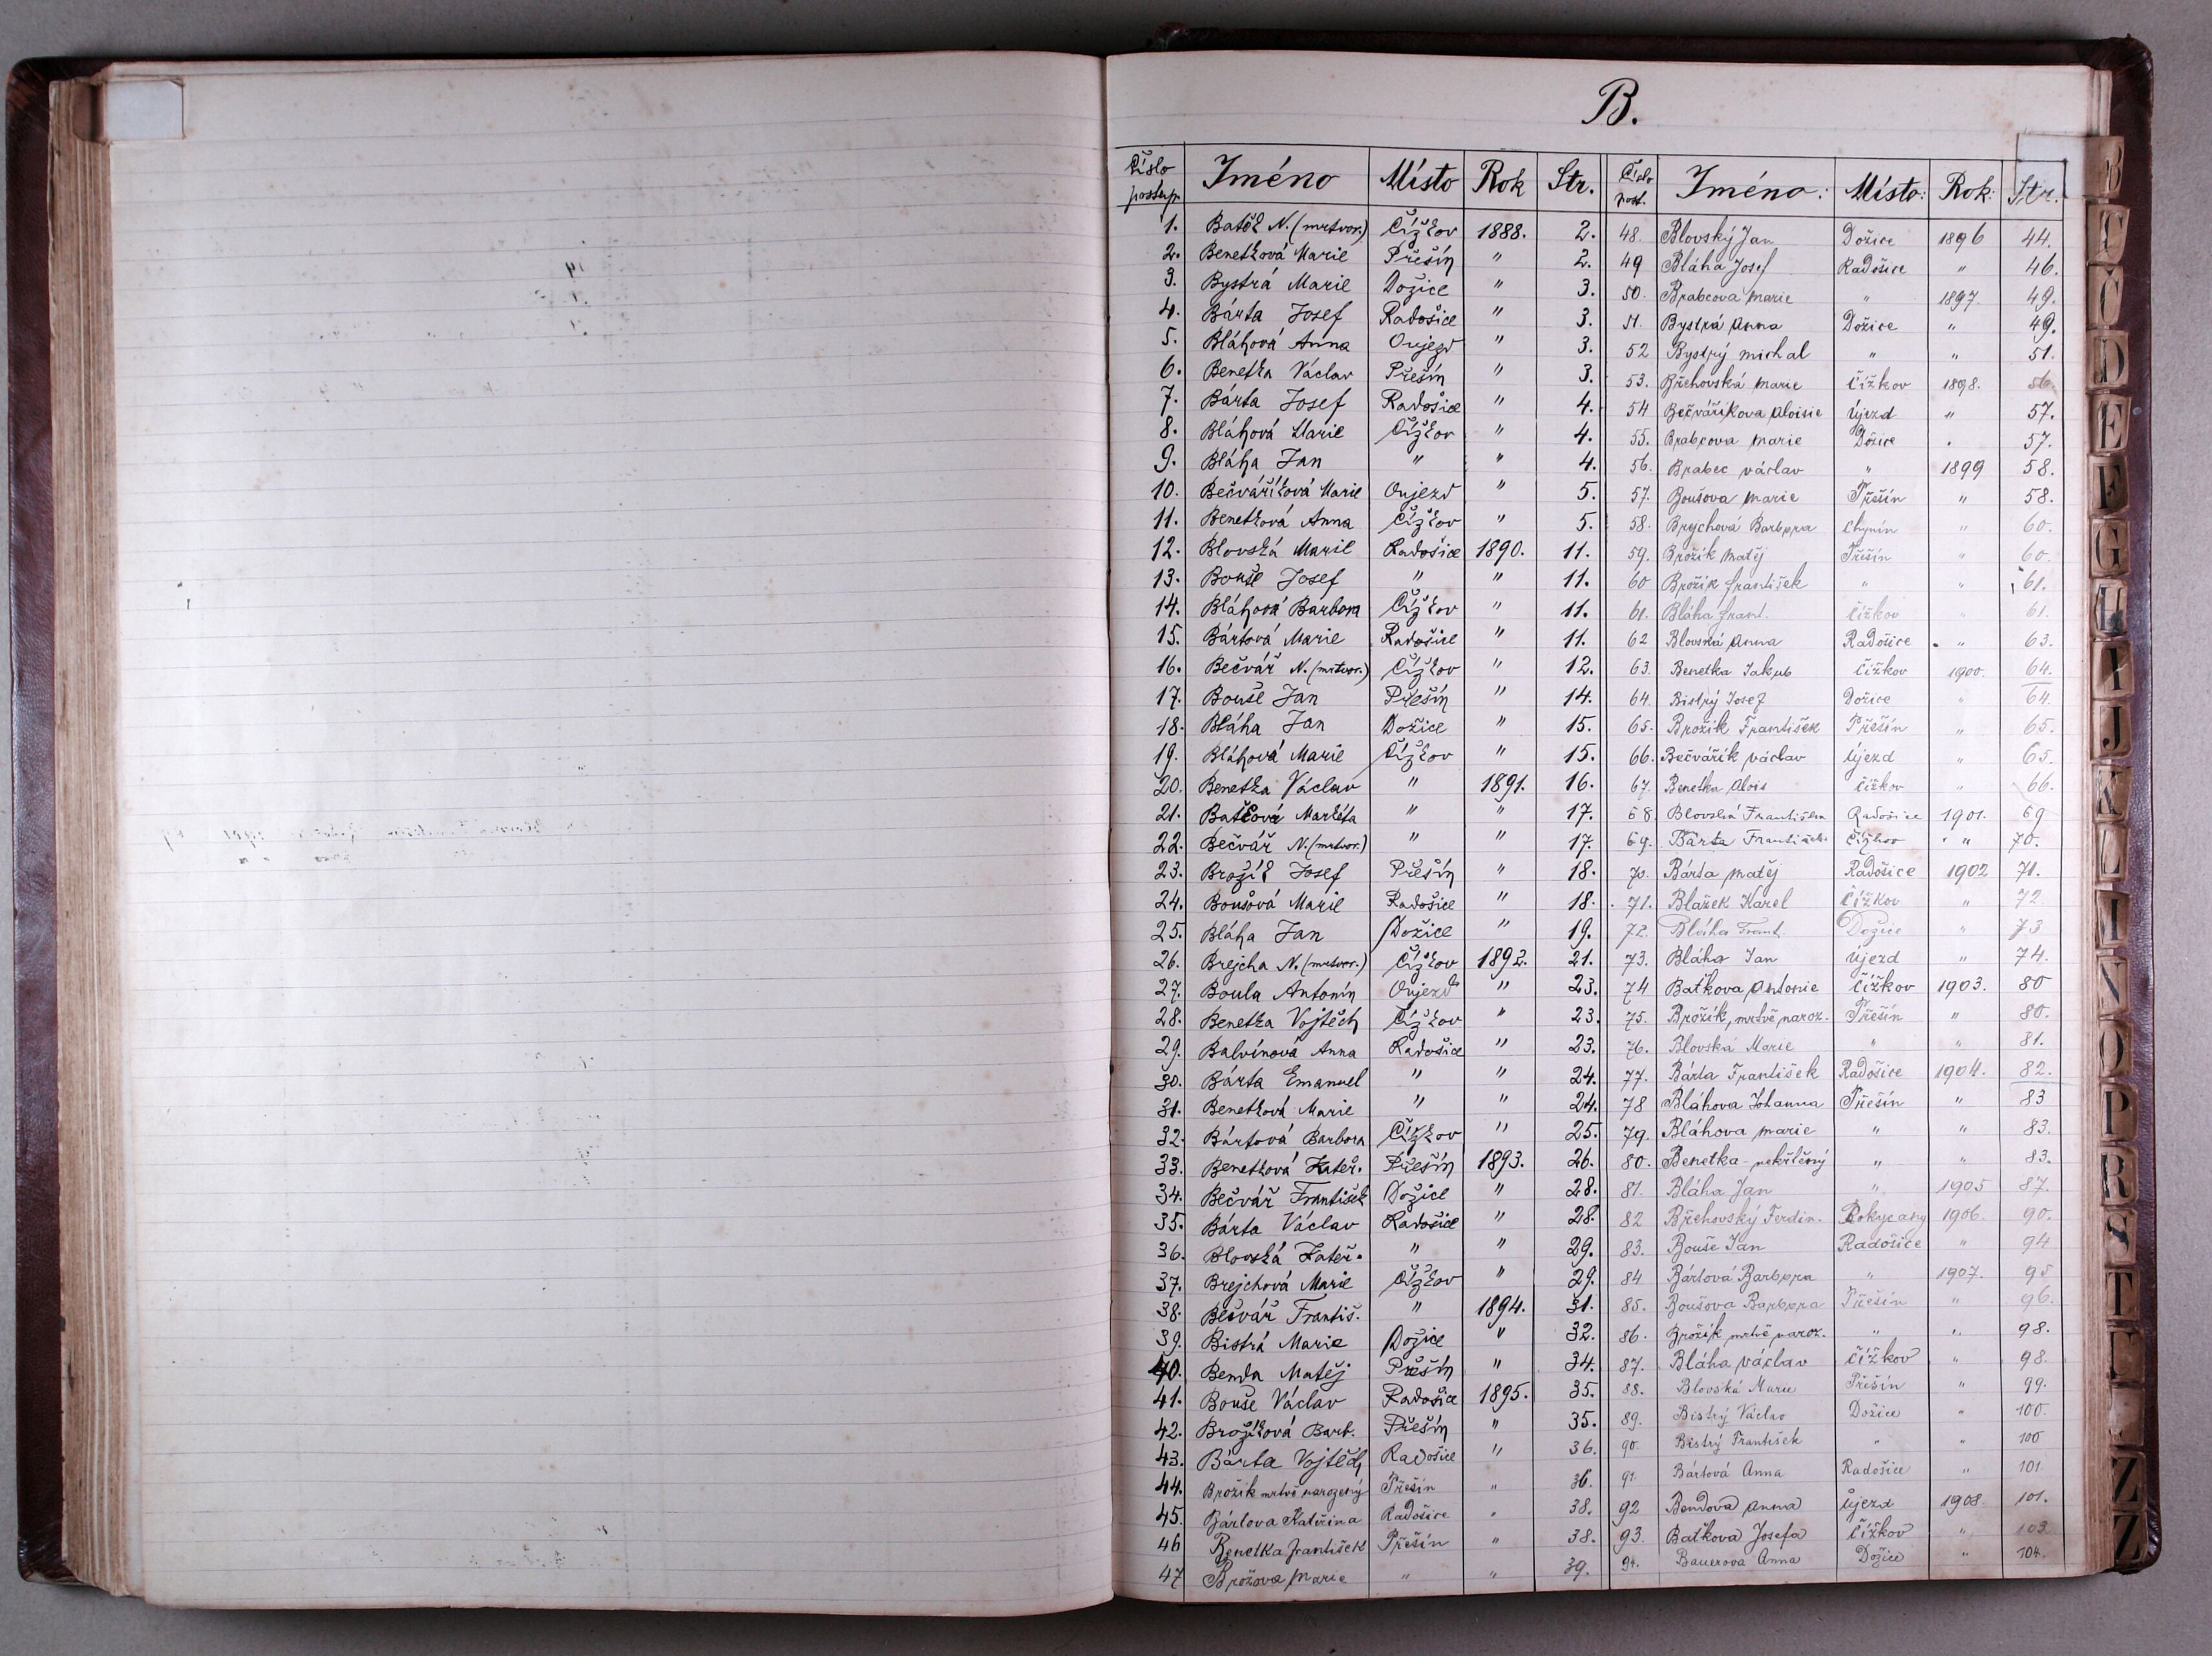 B.
Číslo postup. Jméno Místo Rok Str.
1. Baťěk N. (mrtvor.) Čížkov 1888. 2.
2. Benetková Marie Přešín " 2.
3. Bystrá Marie Dožice " 3.
4. Bárta Josef Radošice " 3.
5. Bláhová Anna Oujezd " 3.
6. Benetka Václav Přešín " 3.
7. Bárta Josef Radošice " 4.
8. Bláhová Marie Čížkov " 4.
9. Bláha Jan " " 4.
10. Bečváříková Marie Oujezd " 5.
11. Benetková Anna Čížkov " 5.
12. Blovská Marie Radošice 1890. 11.
13. Bouše Josef " " 11.
14. Bláhová Barbora Čížkov " 11.
15. Bártová Marie Radošice " 11.
16. Bečvář N. (mrtvor.) Čížkov " 12.
17. Bouše Jan Přešín " 14.
18. Bláha Jan Dožice " 15.
19. Bláhová Marie Čížkov " 15.
20. Benetka Václav " 1891. 16.
21. Baťková Markéta " " 17.
22. Bečvář N. (mrtvor.) " " 17.
23. Brožík Josef Přešín " 18.
24. Boušová Marie Radošice " 18.
25. Bláha Jan Dožice " 19.
26. Brejcha N. (mrtvor.) Čížkov 1892. 21.
27. Boula Antonín Oujezd " 23.
28. Benetka Vojtěch Čížkov " 23.
29. Balvínová Anna Radošice " 23.
30. Bárta Emanuel " " 24.
31. Benetková Marie " " 24.
32. Bártová Barbora Čížkov " 25.
33. Benetková Kateř. Přešín 1893. 26.
34. Bečvář František Dožice " 28.
35. Bárta Václav Radošice " 28.
36. Blovská Kateř. " " 29.
37. Brejchová Marie Čížkov " 29.
38. Bečvář Františ. " 1894. 31.
39. Bistrá Marie Dožice " 32.
40. Benda Matěj Přešín " 34.
41. Bouše Václav Radošice 1895. 35.
42. Brožíková Barb. Přešín " 35.
43. Bárta Vojtěch Radošice " 36.
44. Brožik mrtvě narozený Přešín " 36.
45. Bártova Kateřina Radošice " 38.
46 Benetka František Přešín " 38.
47 Brožova Marie " " 39.
Číslo post. Jméno: Místo: Rok: Str.
48. Blovský Jan Dožice 1896 44.
49 Bláha Josef Radošice " 46.
50. Brabcova Marie " 1897. 49.
51. Bystrá Anna Dožice " 49.
52 Bystrý Michal " " 51.
53. Břehovská Marie Čížkov 1898. 56.
54 Bečváříkova Aloisie Újezd " 57.
55. Brabcova Marie Dožice " 57.
56. Brabec Václav " 1899 58.
57. Boušova Marie Přešín " 58.
58. Brychová Barbora Chynín " 60.
59. Brožík Matěj Přešín " 60.
60 Brožík František " " 61.
61. Bláha Frant. Čížkov " 61.
62 Blovská Anna Radošice " 63.
63. Benetka Jakub Čížkov 1900. 64.
64. Bistrý Josef Dožice " 64.
65. Brožik František Přešín " 65.
66. Bečvářík Václav Újezd " 65.
67. Benetka Alois Čížkov " 66.
68. Blovská Františka Radošice 1901. 69
69. Bárta František Čížkov " 70.
70. Bárta Matěj Radošice 1902 71.
71. Blažek Karel Čížkov " 72
72. Bláha Frant. Dožice " 73
73. Bláha Jan Újezd " 74.
74 Baťkova Antonie Čížkov 1903. 80
75. Brožík, mrtvě naroz. Přešín " 80.
76. Blovská Marie " " 81.
77. Bárta František Radošice 1904. 82.
78 Bláhova Johanna Přešín " 83
79. Bláhova Marie " " 83.
80. Benetka - nekřtěný " " 83.
81. Bláha Jan " 1905 87.
82 Břehovský Ferdin. Rokycany 1906. 90.
83. Bouše Jan Radošice " 94
84 Bártová Barbora " 1907. 95
85. Boušova Barbora Přešín " 96.
86. Brožík mrtvě naroz. " " 98.
87. Bláha Václav Čížkov " 98.
88. Blovská Marie Přešín " 99.
89. Bistrý Václav Dožice " 100.
90. Bistrý František " " 100
91. Bártová Anna Radošice " 101
92 Bendova Anna Újezd 1908. 101.
93. Baťkova Josefa Čížkov " 103
94. Bauerova Anna Dožice " 104.
B
C
Č
D
E
F
G
H
I
J
K
L
N
O
P
R
S
T
Z
Z